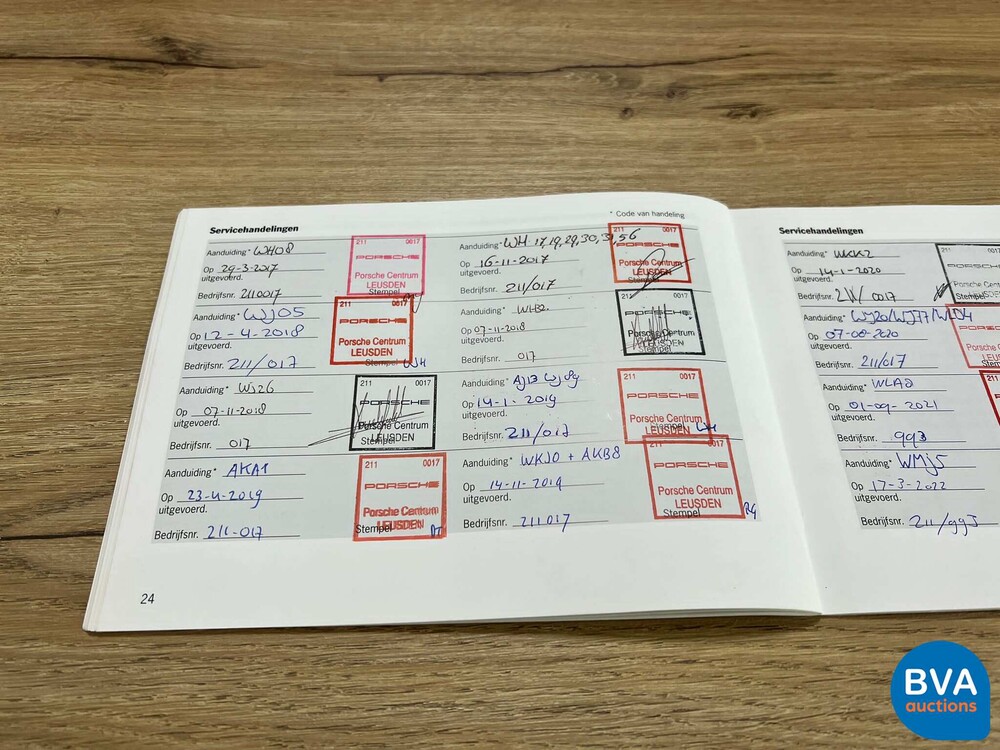 * Code van handeling
Servicehandelingen
Aanduiding* WH08
Op 29-3-2017
uitgevoerd.
Bedrijfsnr. 2110017
211 0017
PORSCHE
Porsche Centrum
LEUSDEN
Stempel
Aanduiding* WH 17,19,29,30,31,56
Op 16-11-2017
uitgevoerd.
Bedrijfsnr. 211/017
0017
PORSCHE
Porsche Centrum
LEUSDEN
Stempel
Aanduiding* WJ05
Op 12-4-2018
uitgevoerd.
Bedrijfsnr. 211/017
211 0017
PORSCHE
Porsche Centrum
LEUSDEN
Stempel WH
Aanduiding*
Op 07-11-2018
uitgevoerd.
Bedrijfsnr. 017
211 0017
PORSCHE
Porsche Centrum
LEUSDEN
Stempel
Aanduiding* WJ26
Op 07-11-2018
uitgevoerd.
Bedrijfsnr. 017
211 0017
PORSCHE
Porsche Centrum
LEUSDEN
Stempel
Aanduiding* AJ13 WJ89
Op 14-1-2019
uitgevoerd.
Bedrijfsnr. 211/017
211 0017
PORSCHE
Porsche Centrum
LEUSDEN
Stempel WH
Aanduiding* AKA1
Op 23-4-2019
uitgevoerd.
Bedrijfsnr. 211-017
211 0017
PORSCHE
Porsche Centrum
LEUSDEN
Stempel
Aanduiding* WKJ0 + AKB8
Op 14-11-2019
uitgevoerd.
Bedrijfsnr. 211017
211 0017
PORSCHE
Porsche Centrum
LEUSDEN
Stempel
24
Servicehandelingen
Aanduiding* WKK2
Op 14-1-2020
uitgevoerd.
Bedrijfsnr. 211/0017
211
PORSCHE
Porsche Cent
LEUSD
Stempel
Aanduiding*
Op 07-08-2020
uitgevoerd.
Bedrijfsnr. 211/017
211
PORSCH
Porsche Ce
LEUSD
Stempel
Aanduiding* WLA2
Op 01-09-2021
uitgevoerd.
Bedrijfsnr. 993
Aanduiding* WMJ5
Op 17-3-2022
uitgevoerd.
Bedrijfsnr.
BVA
auctions